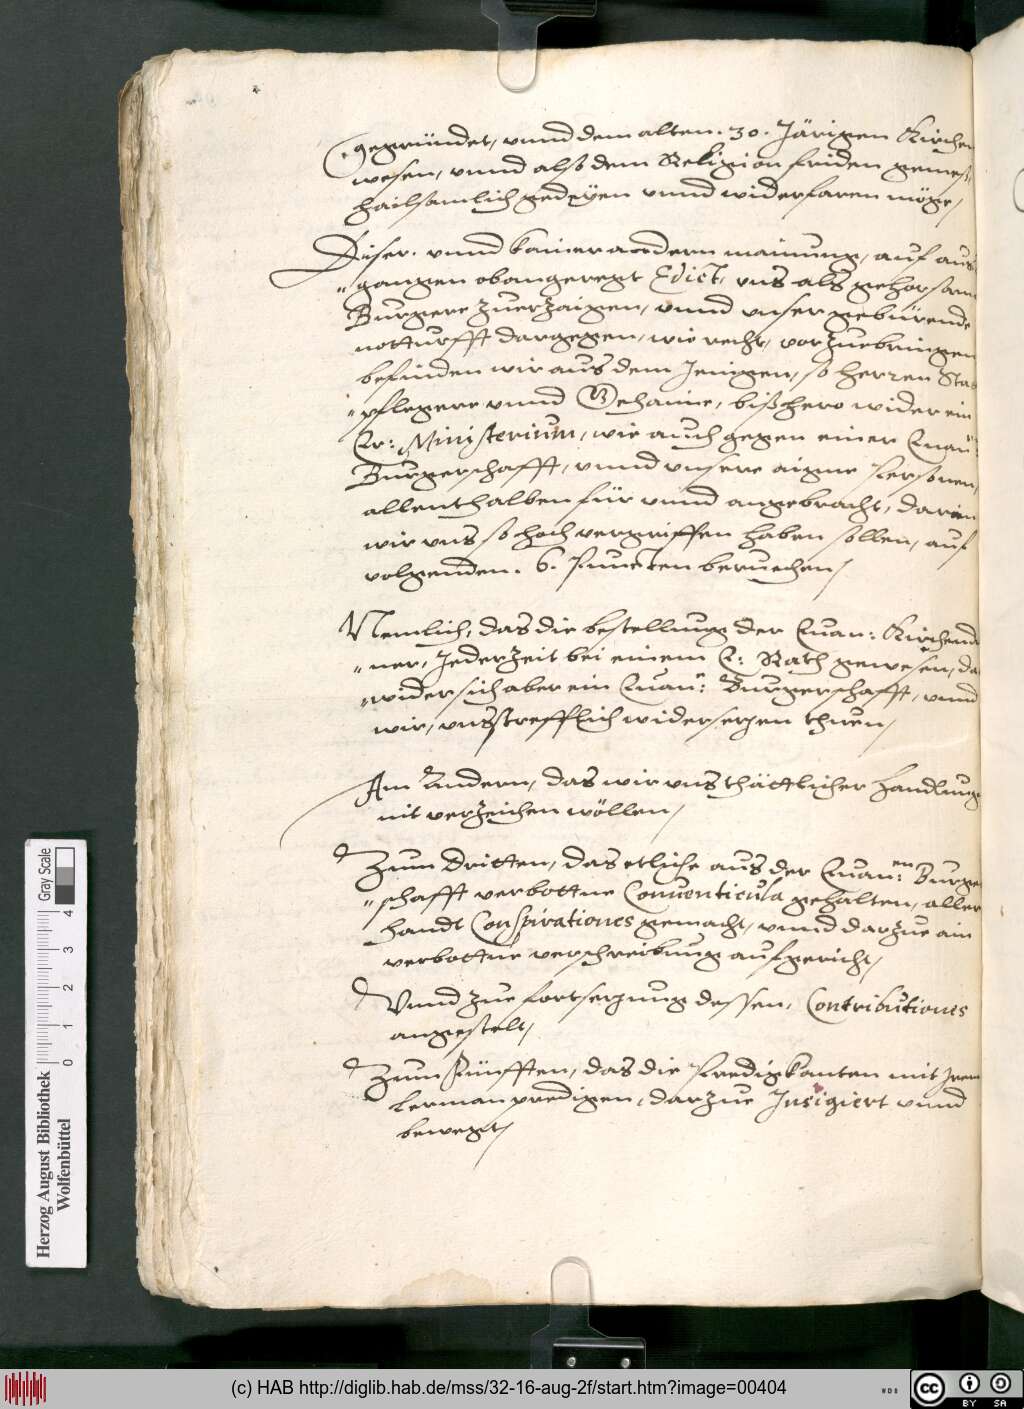 gegründet, vnnd dem alten .30. Järigen Kirchen
wesen, vnnd also dem Religion friden gemeß,
hailsamlich gedeyen vnnd widerfaren möge,
Diser vnnd kainer andern mainung, auf aus
gangen obangeregt Edict, vns als gehorsam
Burgere zuerzaigen, vnnd vnser gebürende
notturfft dargegen, wie recht, vorzuebringen
befinden wir aus dem Jenigen, so herren Stat
pflegere vnnd Gehaime, bißhero wider ein
Er: Ministerium, wie auch gegen einer Euan:
Burgerschafft, vnnd vnsere aigne Personen,
allenthalben für vnnd angebracht, darin
wir vns so hoch vergriffen haben sollen, auf
volgenden .6. Puncten beruechen,
Nemlich, das die bestellung der Euan: Kirchendi
ner, Jederzeit bei einem E: Rath gewesen, da
wider sich aber ein Euan: Burgerschafft, vnnd
wir, vns strefflich widersezen thuen,
Am Andern, das wir vns thättlicher handlung
nit verzeichen wöllen,
Zum Dritten, das etliche aus der Euan:en Burger
schafft verbottne Conuenticula gehalten, aller
handt Conspirationes gemacht, vnnd darzue ain
verbottne verschreibung aufgericht,
Vnnd zue fortsezung dessen, Contributiones
angestelt,
Zum Fünfften, das die Predigkanten mit Jrem
lerman predigen, darzue Instigiert vnnd
bewegt,
Herzog August Bibliothek
Wolfenbüttel
Gray Scale
0 1 2 3 4
(c) HAB http://diglib.hab.de/mss/32-16-aug-2f/start.htm?image=00404
WDB
cc BY SA